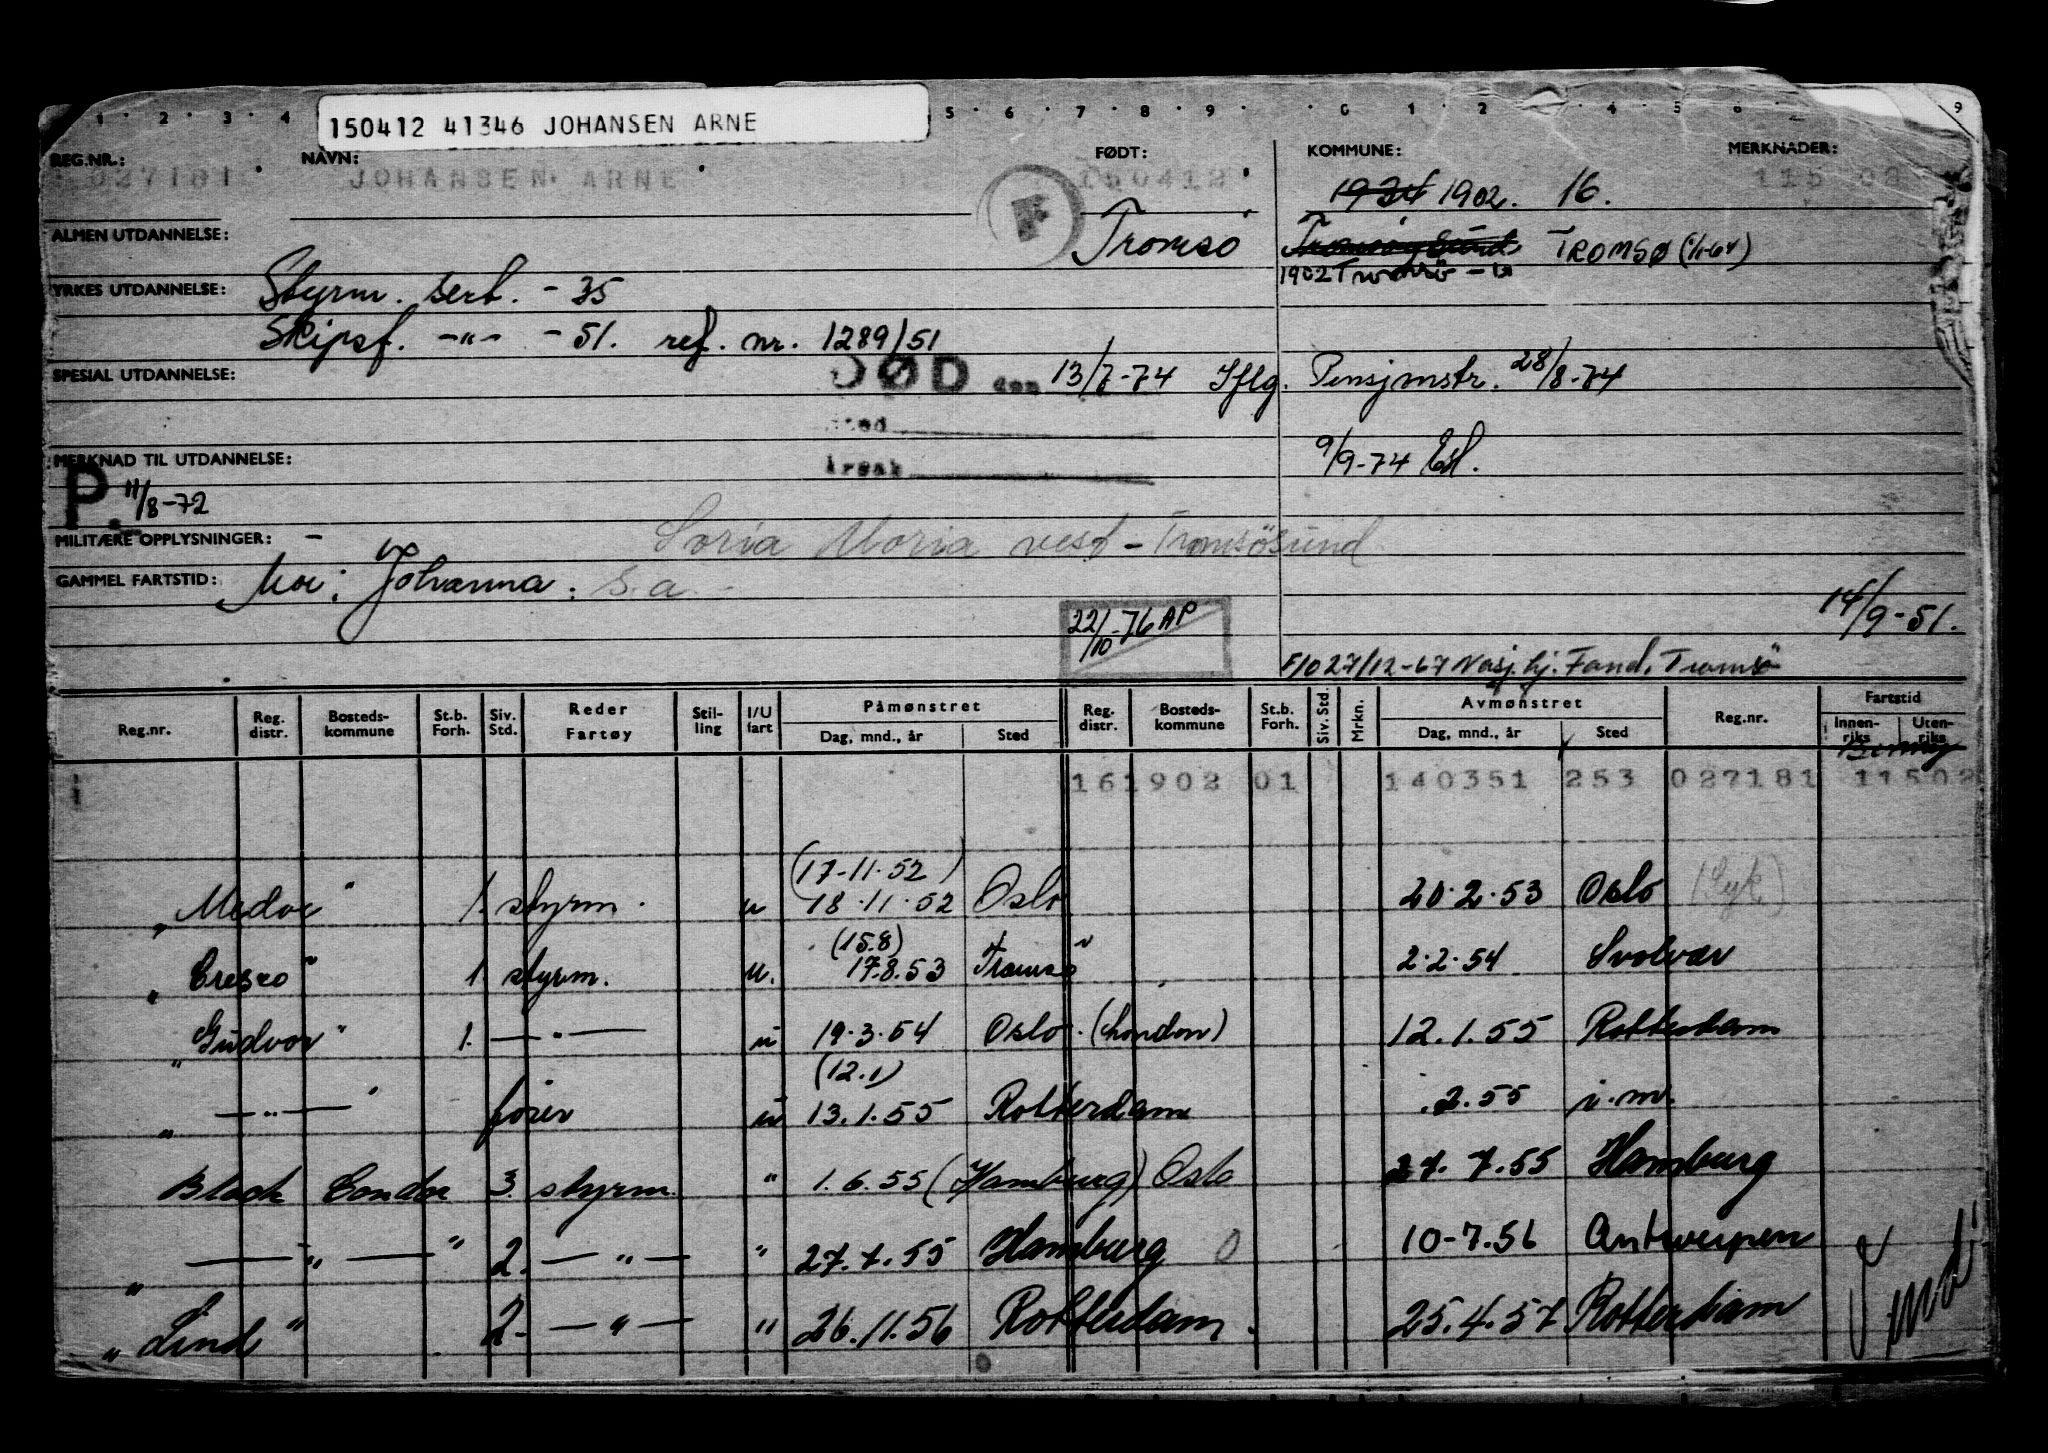 150412 41346 JOHANSEN ARNE
1 · 2 · 3 · 4 5 · 6 · 7 · 8 · 9 · 0 1 · 2 · 4 · 5 6 9
REG.NR.: NAVN: FØDT: KOMMUNE: MERKNADER:
027181 JOHANSEN ARNE F 150412 1902. 16. 115 02
ALMEN UTDANNELSE: Tromsø TROMSØ (1/1-64)
1902 Tromsø
YRKES UTDANNELSE: Styrm. sert. - 35
Skipsf. -"- - 51. ref. nr. 1289/51
SPESIAL UTDANNELSE: DØD den 13/7-74 Iflg. Pensjonstr. 28/8-74
sted
MERKNAD TIL UTDANNELSE: årsak 9/9-74
P. 11/8-72
MILITÆRE OPPLYSNINGER: - Soria Moria vest - Tromsøsund
GAMMEL FARTSTID: Mor: Johanna: s.a.
14/9-51.
22/10-76 AP
F/O 27/12-67 Nasj. hj. Fand. Tromsø
Reg.nr. Reg. distr. Bosteds-kommune St.b. Forh. Siv. Std. Reder Fartøy Stil-ling I/U fart Påmønstret Dag, mnd., år Sted Reg. distr. Bosteds-kommune St.b. Forh. Siv. Std. Mrkn. Avmønstret Dag, mnd., år Sted Reg.nr. Fartstid Innen-riks Uten-riks
161902 01 140351 253 027181 11502
(17-11-52)
"Medor" 1. styrm. u 18.11.52 Oslo 20.2.53 Oslo (Syk)
(15.8)
"Cresco" 1. styrm. u. 17.8.53 Tromsø 2.2.54 Svolvær
"Gudvor" 1. —"— u 19.3.54 Oslo. (London) 12.1.55 Rotterdam
(12.1)
" —"— " fører u 13.1.55 Rotterdam .2.55 i.m.
Black Condor 3. styrm. " 1.6.55 (Hamburg) Oslo 27.7.55 Hamburg
" —"— " 2. —"— " 27.7.55 Hamburg 0 10-7.56 Antwerpen
"Lind" 2. —"— " 26.11.56 Rotterdam. 25.4.57 Rotterdam